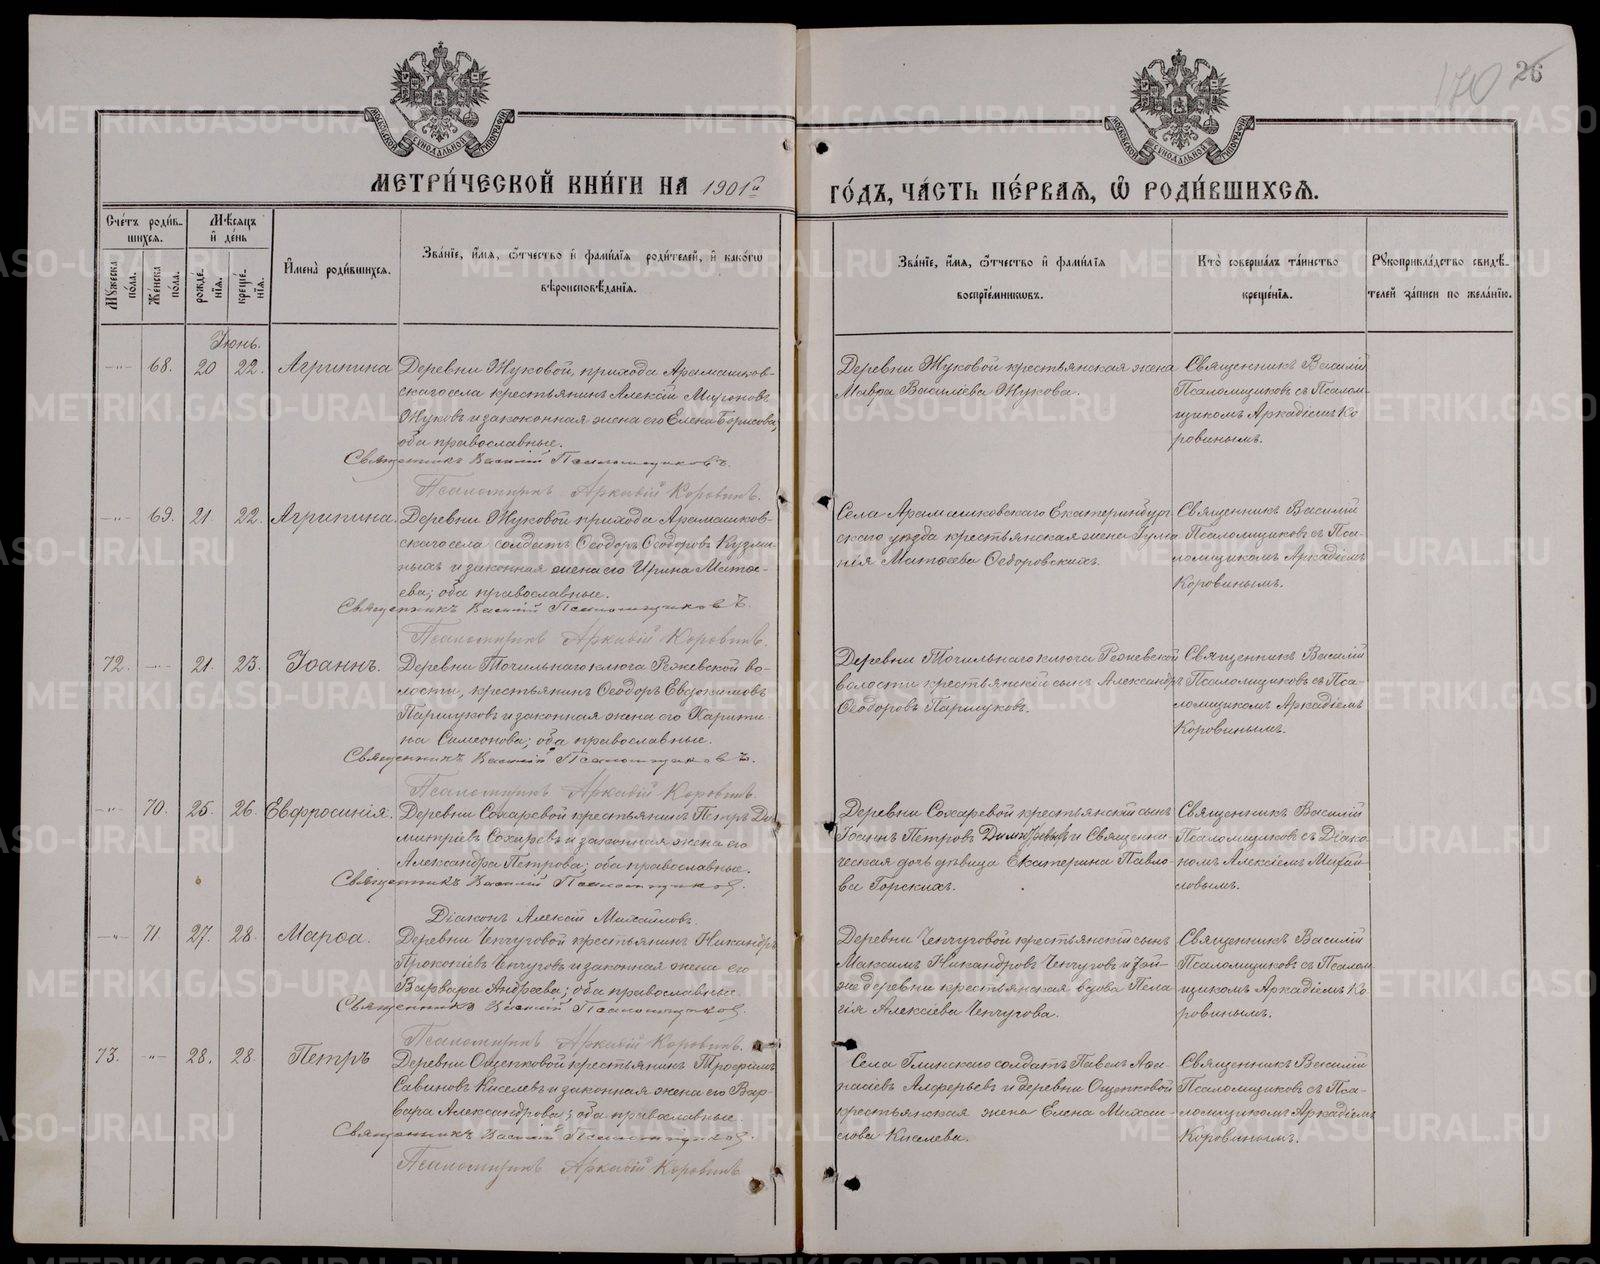 170 26
МЕТРИ́ЧЕСКОЙ КНИ́ГИ НА 1901й ГО́ДЪ, ЧА́СТЬ ПЕ́РВАѦ, Ѿ РОДИ́ВШИХСѦ.
МОСКОВСКОЙ СѴНОДАЛЬНОЙ ТИПОГРАФІИ
МОСКОВСКОЙ СѴНОДАЛЬНОЙ ТИПОГРАФІИ
Сче́тъ роди́в-
шихсѧ.
Мужеска по́ла.
Же́нска по́ла.
Мѣ́сѧцъ
и҆ де́нь
рожде́нїѧ.
креще́нїѧ.
И҆мена̀ роди́вшихсѧ.
Зва́нїе, и҆́мѧ, ѻ҆́тчество и҆ фами́лїѧ роди́телей, и҆ како́гѡ
вѣроисповѣ́данїѧ.
Зва́нїе, и҆́мѧ, ѻ҆́тчество и҆ фами́лїѧ
воспрїе́мникѡвъ.
Кто̀ соверша́лъ та́инство
креще́нїѧ.
Рꙋкоприкла́дство свидѣ́-
телей за́писи по жела́нїю.
Іюнь.
68. 20 22. Агрипина
Деревни Жуковой, прихода Арамашков-
скаго села крестьянинъ Алексій Мироновъ
Жуковъ и законная жена его Елена Борисова,
оба православные.
Священникъ Василій Псаломщиковъ.
Псаломщикъ Аркадій Коровинъ.
Деревни Жуковой крестьянская жена
Мавра Василіева Жукова.
Священникъ Василій
Псаломщиковъ съ Псалом-
щикомъ Аркадіемъ Ко-
ровинымъ.
69. 21. 22. Агрипина.
Деревни Жуковой прихода Арамашков-
скаго села солдатъ Ѳеодоръ Ѳеодоровъ Кузми-
ныхъ и законная жена его Ирина Матѳе-
ева; оба православные.
Священникъ Василій Псаломщиковъ.
Псаломщикъ Аркадій Коровинъ.
Села Арамашковскаго Екатеринбург-
скаго уѣзда крестьянская жена Іулиа-
нія Матѳеева Ѳедоровскихъ.
Священникъ Василій
Псаломщиковъ съ Пса-
ломщикомъ Аркадіемъ
Коровинымъ.
72. 21. 23. Іоаннъ.
Деревни Точильнаго ключа Режевской во-
лости, крестьянинъ Ѳеодоръ Евдокимовъ
Паршуковъ и законная жена его Харити-
на Симеонова; оба православные.
Священникъ Василій Псаломщиковъ.
Псаломщикъ Аркадій Коровинъ.
Деревни Точильнаго ключа Режевской
волости крестьянскій сынъ Александръ
Ѳеодоровъ Паршуковъ.
Священникъ Василій
Псаломщиковъ съ Пса-
ломщикомъ Аркадіемъ
Коровинымъ.
70. 25. 26. Евфросинія.
Деревни Сохаревой крестьянинъ Петръ Ди-
митріевъ Сохаревъ и законная жена его
Александра Петрова; оба православные.
Священникъ Василій Псаломщиковъ.
Діаконъ Алексій Михайловъ.
Деревни Сохаревой крестьянскій сынъ
Іоаннъ Петровъ и Священни-
ческая дочь дѣвица Екатерина Павло-
ва Горскихъ.
Священникъ Василій
Псаломщиковъ съ Діако-
номъ Алексіемъ Михай-
ловымъ.
71. 27. 28. Марѳа.
Деревни Ченчуговой крестьянинъ Никандръ
Прокопіевъ Ченчуговъ и законная жена его
Варвара Андреева; оба православные.
Священникъ Василій Псаломщиковъ.
Псаломщикъ Аркадій Коровинъ.
Деревни Ченчуговой крестьянскій сынъ
Максимъ Никандровъ Ченчуговъ и той-
же деревни крестьянская вдова Пела-
гія Алексіева Ченчугова.
Священникъ Василій
Псаломщиковъ съ Псалом-
щикомъ Аркадіемъ Ко-
ровинымъ.
73. 28. 28. Петръ
Деревни Ощепковой крестьянинъ Трофимъ
Савиновъ Киселевъ и законная жена его Вар-
вара Александрова; оба православные.
Священникъ Василій Псаломщиковъ.
Псаломщикъ Аркадій Коровинъ
Села Глинскаго солдатъ Павелъ Аѳа-
насіевъ Алферьевъ и деревни Ощепковой
крестьянская жена Елена Михаи-
лова Киселева.
Священникъ Василій
Псаломщиковъ съ Пса-
ломщикомъ Аркадіемъ
Коровинымъ.
METRIKI.GASO-URAL.RU